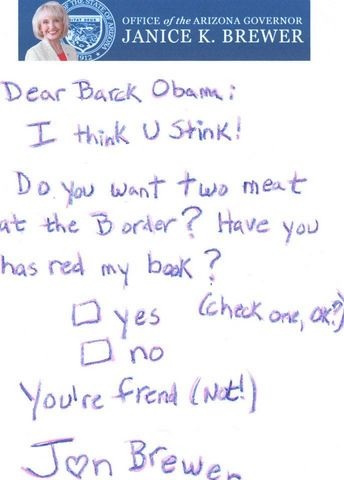 OFFICE of the ARIZONA GOVERNOR
JANICE K. BREWER
1912
Dear Barck Obama:
I think U Stink!
Do you want two meat
at the Border? Have you
has red my book?
yes (check one, ok?)
no
You're frend (Not!)
Jan Brewer